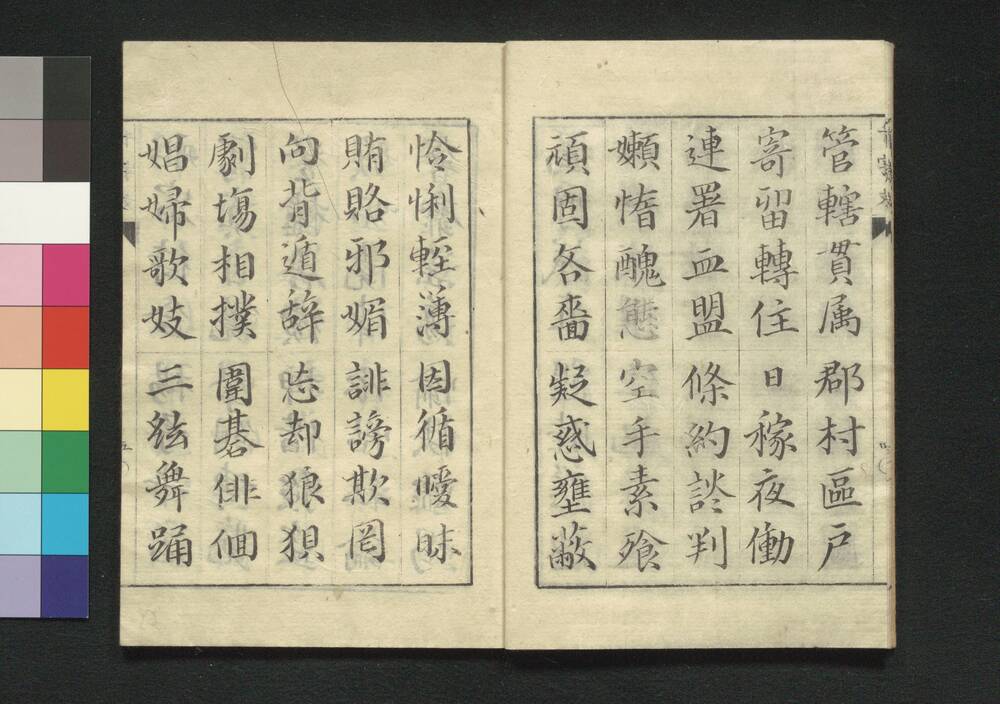 管轄貫属郡村區戸
寄留轉住日稼夜働
連署血盟條約談判
嬾惰醜態空手素飱
頑固吝嗇疑惑壅蔽
恰悧輕薄因循曖昧
賄賂邪媚誹謗欺罔
向背遁辞忘却狼狽
劇場相撲圍碁俳個
娼婦歌妓三絃舞踊